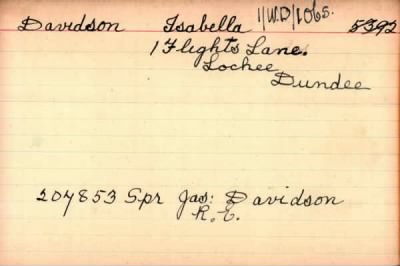 Davidson Isabella 11/W.D/1065. 5392
1 Flights Lane.
Lochee
Dundee
207853 Spr Jas: Davidson
R.E.